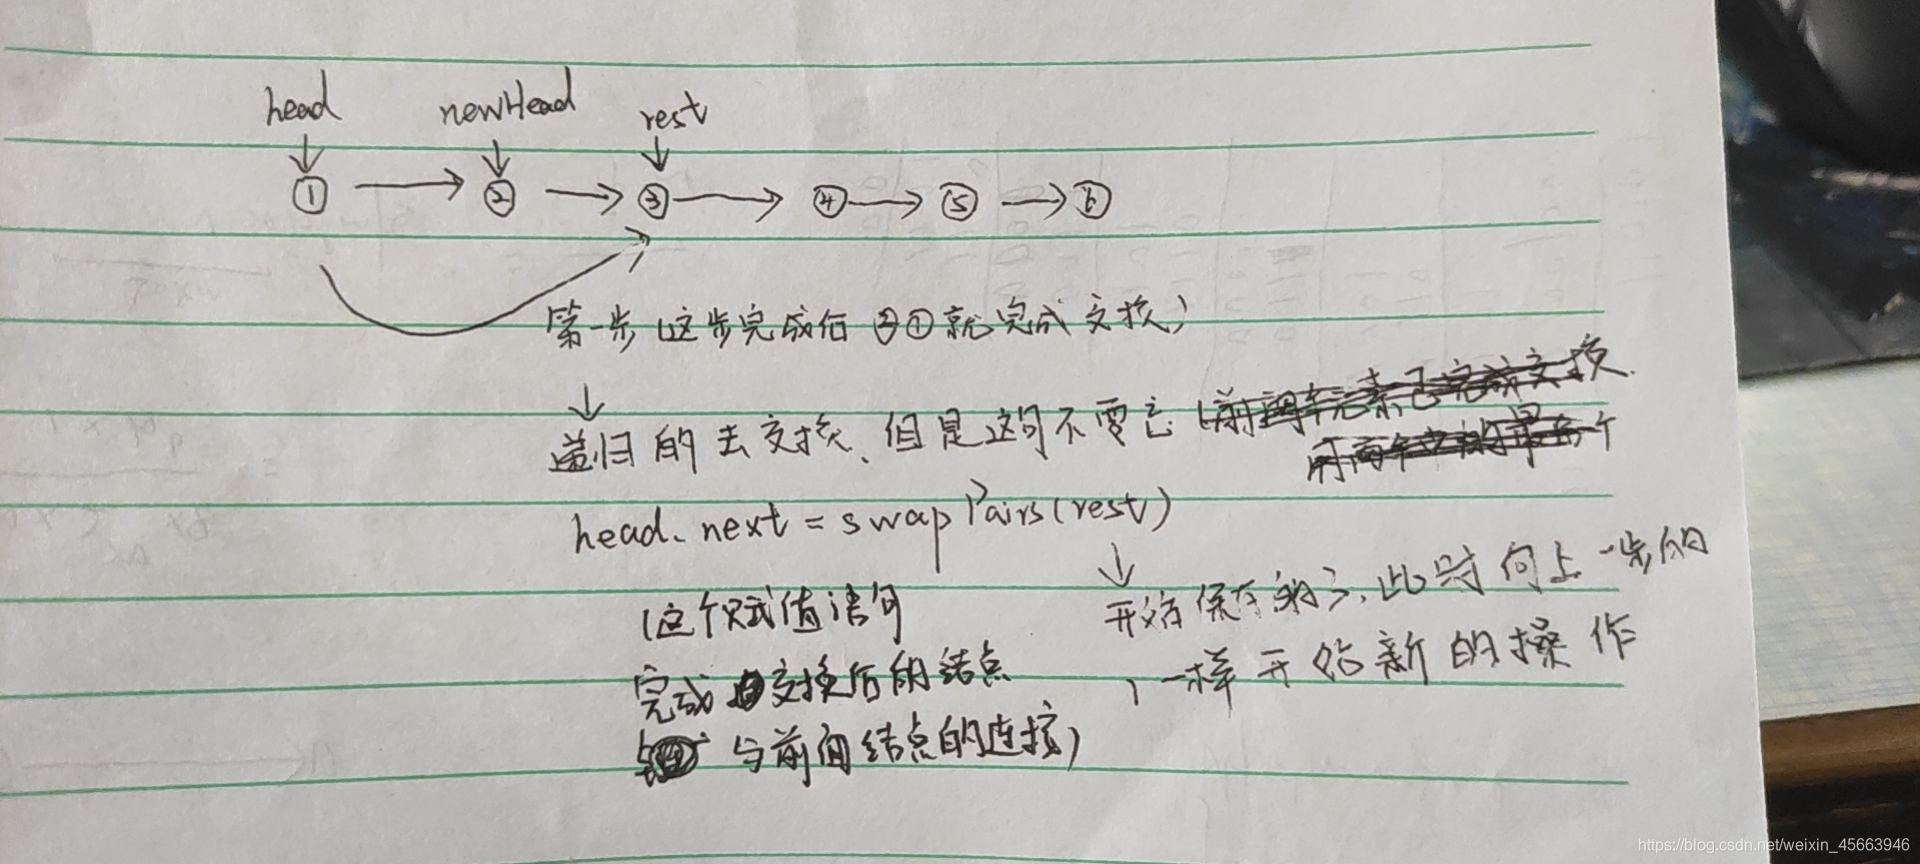 head newHead rest
① ② ③ ④ ⑤ ⑥
第一步(这步完成后 ②①就完成交换)
递归的去交换、但是这句不要忘
head.next = swapPairs(rest)
(这个赋值语句
完成交换后的结点
与前面结点的连接)
开始保存的3,此时向上一步的
1一样开始新的操作
https://blog.csdn.net/weixin_45663946